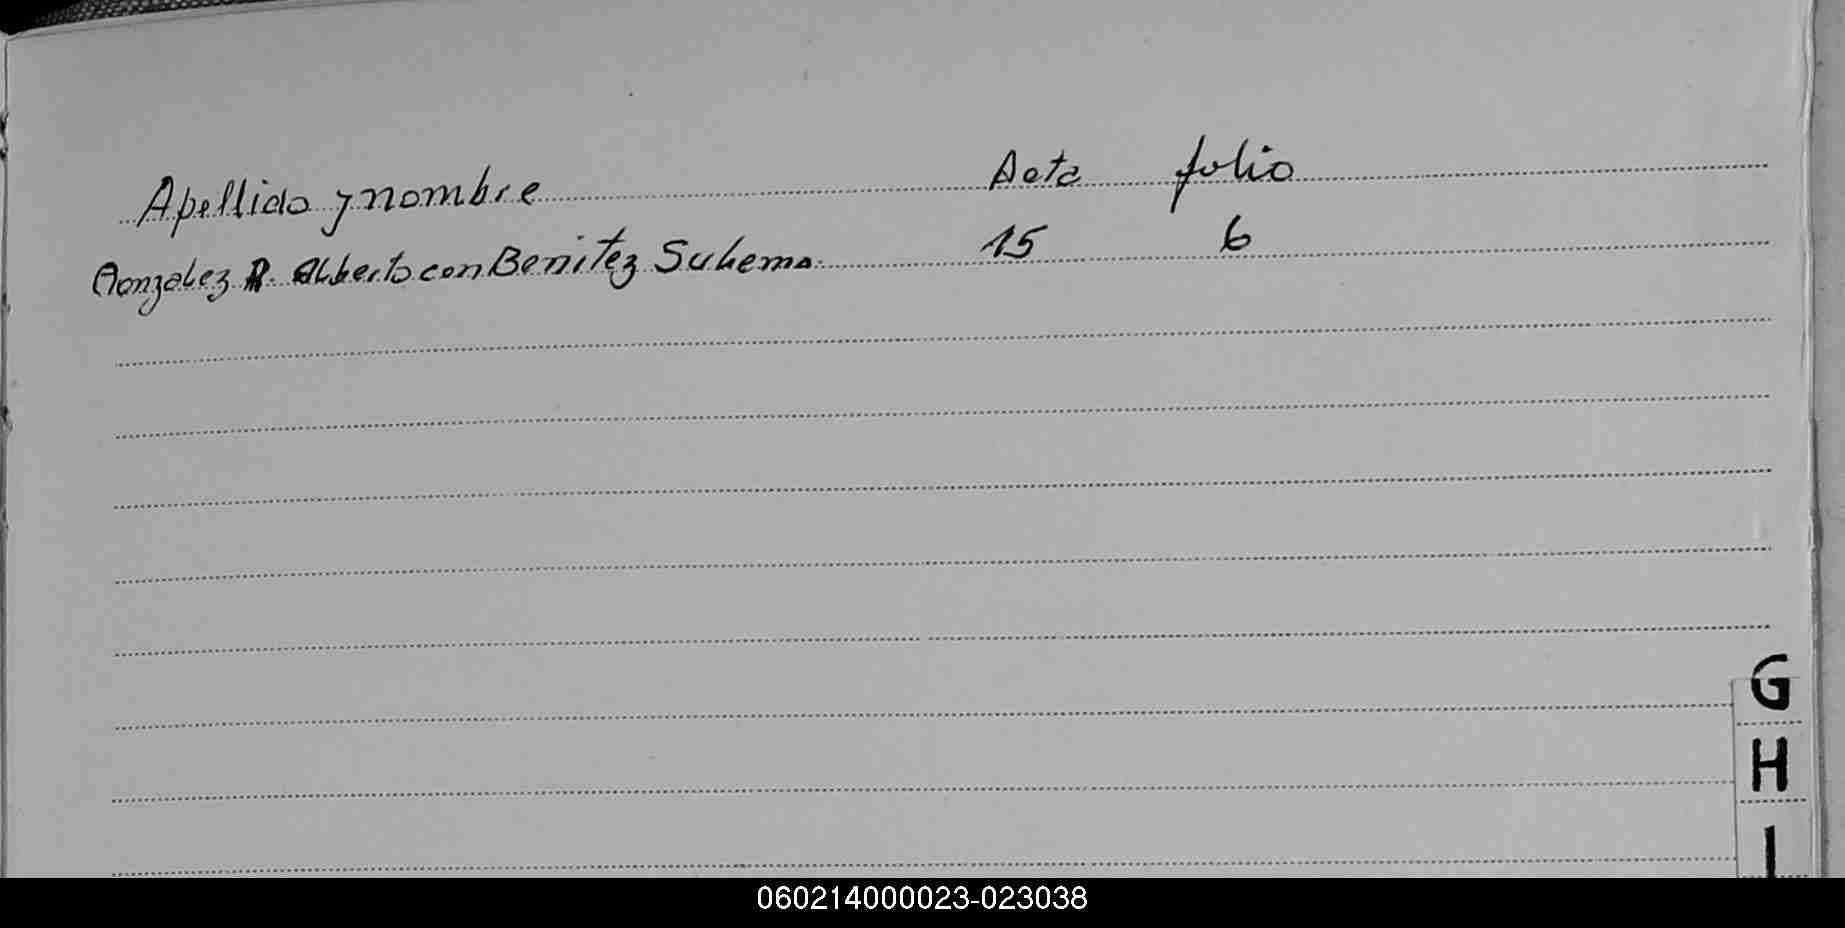 Apellido y nombre Acta folio
Gonzalez R. Alberto con Benitez Sulema 15 6
G
H
I
060214000023-023038